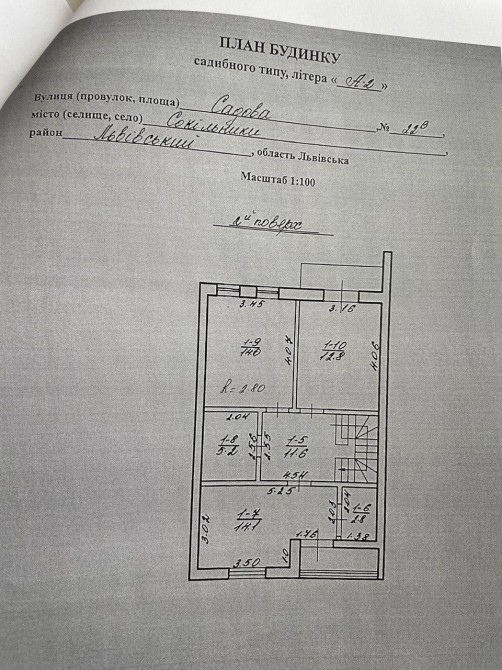 ПЛАН БУДИНКУ
садибного типу, літера « А-2 »
Вулиця (провулок, площа) Садова , № 22в ,
місто (селище, село) Сокільники ,
район Львівський , область Львівська
Масштаб 1:100
2й поверх
3.45
3.16
1-9
14.0
4.07
1-10
12.8
4.06
h = 2.80
2.04
1-8
5.2
2.56
2.55
1-5
11.6
4.54
5.25
1-7
14.1
3.02
2.03
2.04
1-6
2.8
1.38
1.75
1.0
3.50